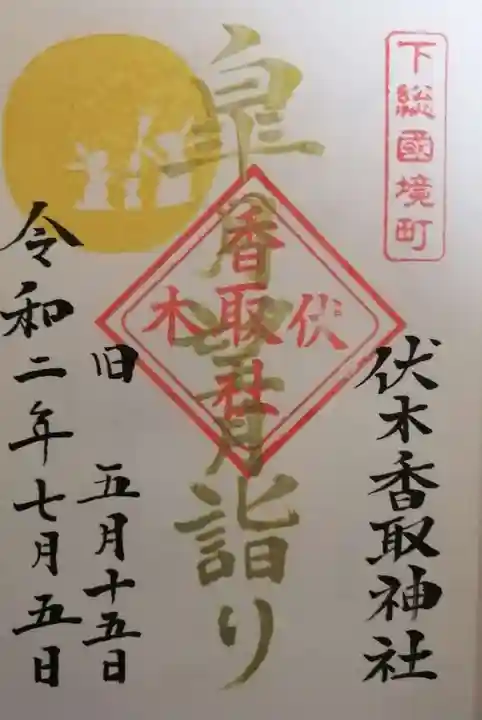 下総國境町
伏木香取神社
皐月望月詣り
伏木
香取社
旧 五月十五日
令和二年七月五日